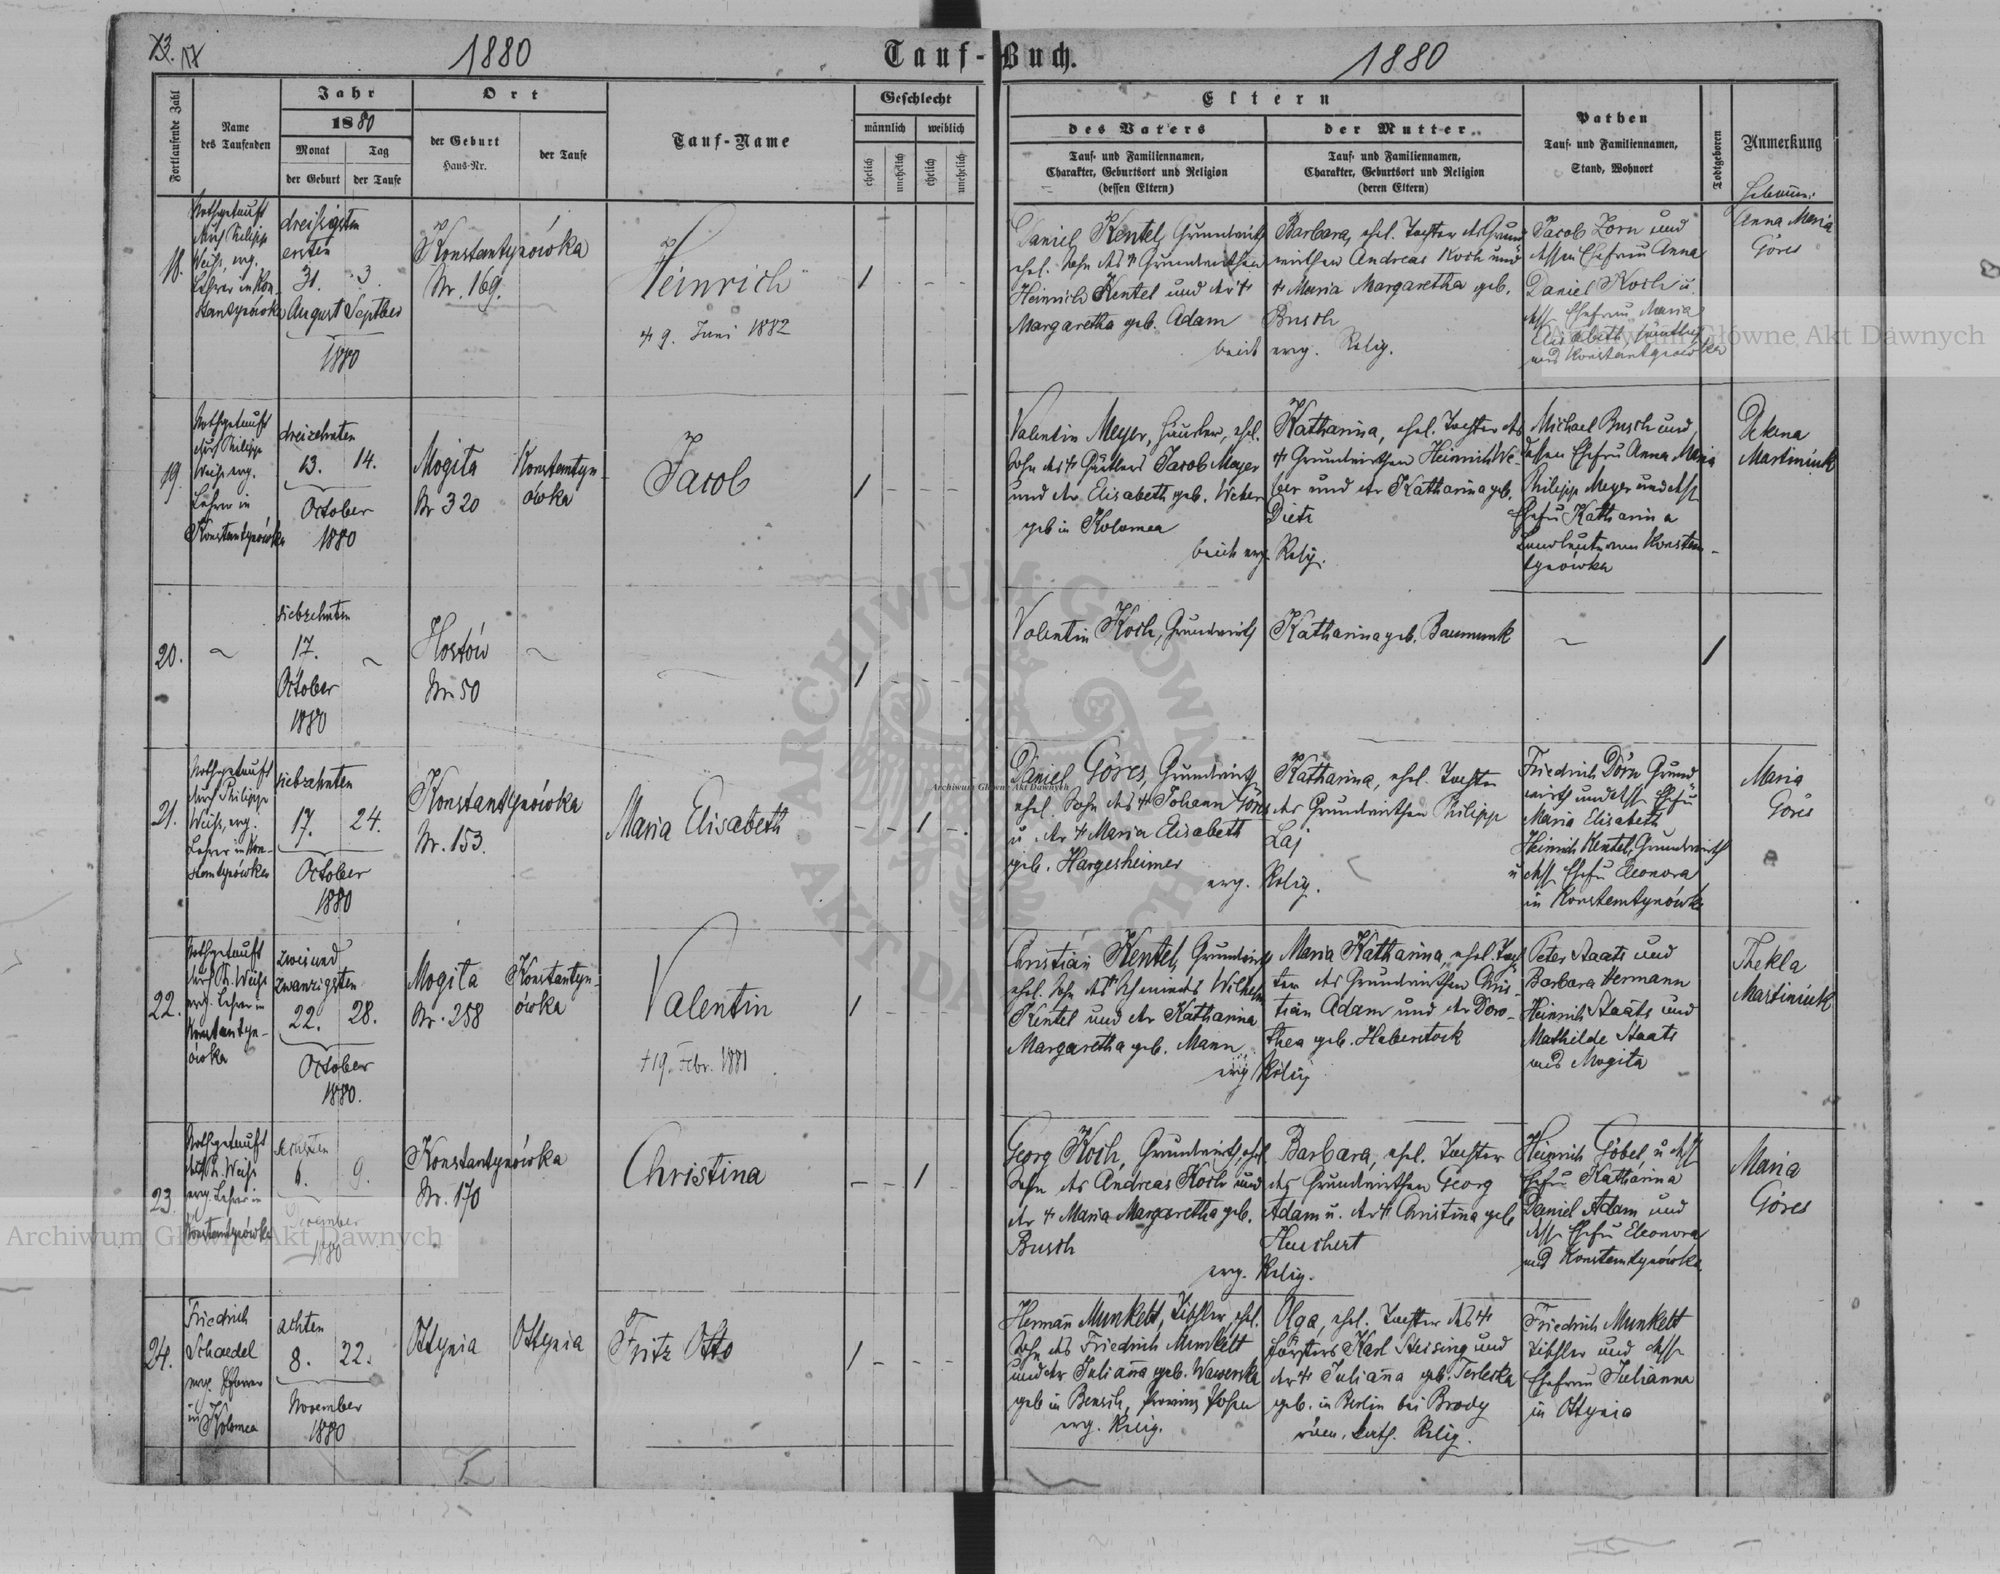 1880
Tauf-Buch.
1880
Fortlaufende Zahl
Name
des Taufenden
Jahr
1880
Monat
Tag
der Geburt
der Taufe
Ort
der Geburt
Haus-Nr.
der Taufe
Tauf-Name
Geschlecht
männlich
weiblich
ehelich
unehelich
ehelich
unehelich
Eltern
des Vaters
Tauf- und Familiennamen,
Charakter, Geburtsort und Religion
(dessen Eltern)
der Mutter
Tauf- und Familiennamen,
Charakter, Geburtsort und Religion
(deren Eltern)
Pathen
Tauf- und Familiennamen,
Stand, Wohnort
Todtgeboren
Anmerkung
18.
Nothgetauft
durch Philipp
Weiß, evg.
Lehrer in Kon-
stantynówka
dreißigsten
ersten
31. 3.
August Septber
1880
Konstantynówka
Nr. 169.
Heinrich
+ 9. Juni 1882
Daniel Kentel, Grundwirth
ehel. Sohn des + Grundwirthen
Heinrich Kentel und der +
Margaretha geb. Adam
beide
Barbara, ehel. Tochter des Grund
wirthen Andreas Koch und
+ Maria Margaretha geb.
Busch
evg. Relig.
Jacob Zorn und
dessen Ehefrau Anna
Daniel Koch u
dess Ehefrau Maria
Elisabeth, sämtlich
aus Konstantynówka
Anna Maria
Göres
19.
Nothgetauft
durch Philipp
Weiß evg.
Lehrer in
Konstantynówka
dreizehnten
13. 14.
October
1880
Mogita
Nr 320
Konstantyn-
ówka
Jacob
Valentin Meyer, Häusler, ehel.
Sohn des + Gärtlers Jacob Meyer
und der Elisabeth geb. Weber
geb in Kolomea
beide evg.
Katharina, ehel. Tochter des
+ Grundwirthen Heinrich We-
ber und der Katharina geb.
Dietz
Relig.
Michael Busch und
dessen Ehefrau Anna Maria
Philipp Meyer und dess
Ehefrau Katharina
Landleute aus Konstan-
tynówka
Martiniuk
20.
siebzehnten
17.
October
1880
Hostów
Nr 50
Valentin Koch, Grundwirth
Katharina geb. Baumunk
21.
Nothgetauft
durch Philipp
Weiß, evg.
Lehrer in Kon-
stantynówka
siebzehnten
17. 24.
October
1880
Konstantynówka
Nr. 153.
Maria Elisabeth
Daniel Göres, Grundwirth
ehel. Sohn des + Johann Göres
u. der + Maria Elisabeth
geb. Hargesheimer
evg.
Katharina, ehel. Tochter
des Grundwirthen Philipp
Laj
Relig.
Friedrich Dörn Grund
wirth und dess Ehefrau
Maria Elisabeth
Heinrich Kentel, Grundwirth
u dess Ehefrau Eleonora
in Konstantynówka
Maria
Göres
22.
Nothgetauft
durch Ph. Weiß
evg. Lehrer in
Konstantyn-
ówka
zweiund
zwanzigsten
22. 28.
October
1880.
Mogita
Nr. 258
Konstantyn-
ówka
Valentin
+ 19. Febr. 1881
Christian Kentel, Grundwirth
ehel. Sohn des Schmieds Wilhelm
Kentel und der Katharina
Margaretha geb. Mann
evg
Maria Katharina, ehel. Toch
ter des Grundwirthen Chris-
tian Adam und der Doro-
thea geb. Haberstock
Relig
Peter Staats und
Barbara Hermann
Heinrich Staats und
Mathilde Staats
aus Mogita
Thekla
Martiniuk
23.
Nothgetauft
durch Ph. Weiß
evg. Lehrer in
Konstantynówka
6. 9.
December
1880
Konstantynówka
Nr. 170
Christina
Georg Koch, Grundwirth, ehel.
Sohn des Andreas Koch und
der + Maria Margaretha geb.
Busch
evg.
Barbara, ehel. Tochter
des Grundwirthen Georg
Adam u. der + Christina geb
Huschert
Relig.
Heinrich Göbel u dess
Ehefrau Katharina
Daniel Adam und
dess Ehefrau Eleonora
aus Konstantynówka
Maria
Göres
24.
Friedrich
Schaedel
evg. Pfarrer
in Kolomea
achten
8. 22.
November
1880
Ottynia
Ottynia
Fritz Otto
Hermann Munkelt, Tischler, ehel.
Sohn des Friedrich Munkelt
und der Julianna geb. Wawerska
geb in Bensch, Provinz Posen
evg. Relig.
Olga, ehel. Tochter des +
Försters Karl Steising und
der + Julianna geb. Terlecka
geb. in Berlin bei Brody
röm. kath. Relig.
Friedrich Munkelt
Tischler und dess
Ehefrau Julianna
in Ottynia
Archiwum Główne Akt Dawnych
Archiwum Główne Akt Dawnych
Archiwum Główne Akt Dawnych